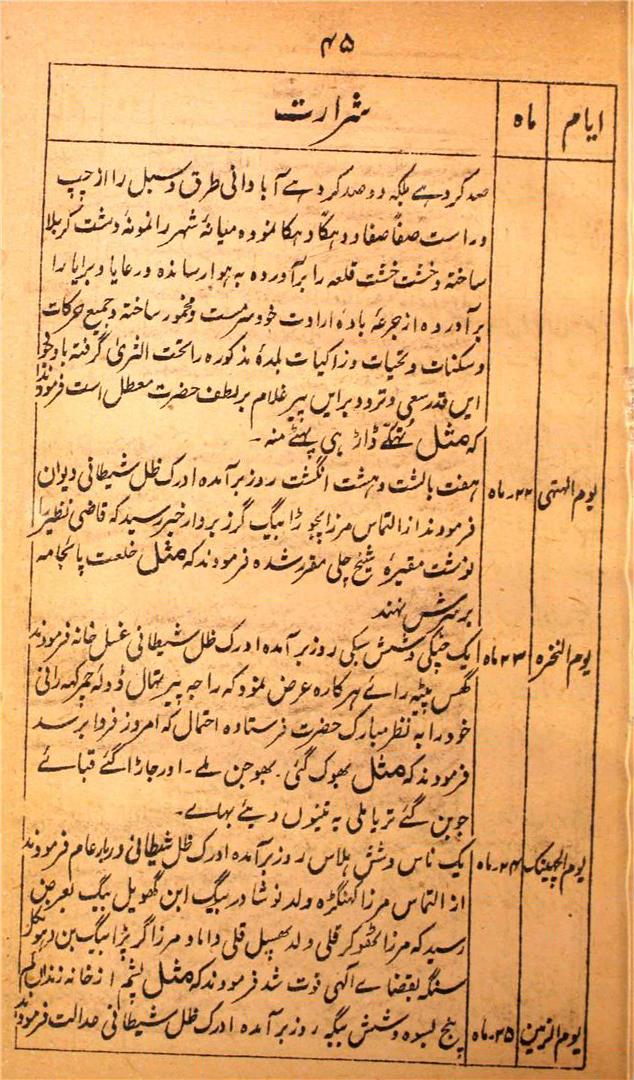 ۴۵
ایام ماه شرارت
صد کردہے بلکہ دو صد کردہے آبادانی طرق و سبل را از چپ
و راست صفاً صفا و دہکا دہکا نموده میانۂ شہر را نمونۂ دشت کربلا
ساختہ و خشت خشت قلعہ را برآورده بہ ہوا رسانده و رعایا و برایا را
برآورده از جرعۂ بادۂ ارادت خود سرمست و مخمور ساختہ و جمیع حرکات
و سکنات و تحیات و زاکیات بلدۂ مذکوره را تحت الثریٰ گرفتہ
ایں قدر سعی و تردد برایں پیر غلام بر لطف حضرت معطل است فرمودند
کہ مثل ڈاڑہی پہٹے منہ۔
یوم الہتی ۲۲۔ماه ہفت بالشت و ہشت انگشت روز برآمده ادرک ظل شیطانی دیوان
فرمودند از التماس مرزا بیگ گرز بردار خبر رسید کہ قاضی
نوشت مقبرۂ شیخ چلی مقرر شده فرمودند کہ مثل خلعت پائجامہ
برسرش نہند
یوم النخره ۲۳۔ماه ایک چپکی و شش سبکی روز برآمده ادرک ظل شیطانی غسل خانہ فرمودند
گھس بیٹھ رائے ہرکاره عرض نمود کہ راجہ ڈولہ رانی
خود را بہ نظر مبارک حضرت فرستاده احتمال کہ امروز فردا برسد
فرمودند کہ مثل بھوک گئی۔ بھوجن ملے۔ اور جاڑا گئے قبائے
جوبن گئے تریا ملی یہ تینوں دیئے بہائے۔
یوم الچھینک ۲۴۔ماه یک ناس و شش ہلاس روز برآمده ادرک ظل شیطانی دربار عام فرمودند
از التماس مرزا کہنگڑه ولد نوشادر بیگ ابن گھویل بیگ بعرض
رسید کہ مرزا قلی ولد قلی داماد مرزا بیگ بن
سنگہ بقضاے الٰہی فوت شد فرمودند کہ مثل پشم از خانہ زندان
یوم الزمین ۲۵۔ماه پنج بسوه و شش بیگہ روز برآمده ادرک ظل شیطانی صدالت فرمودند